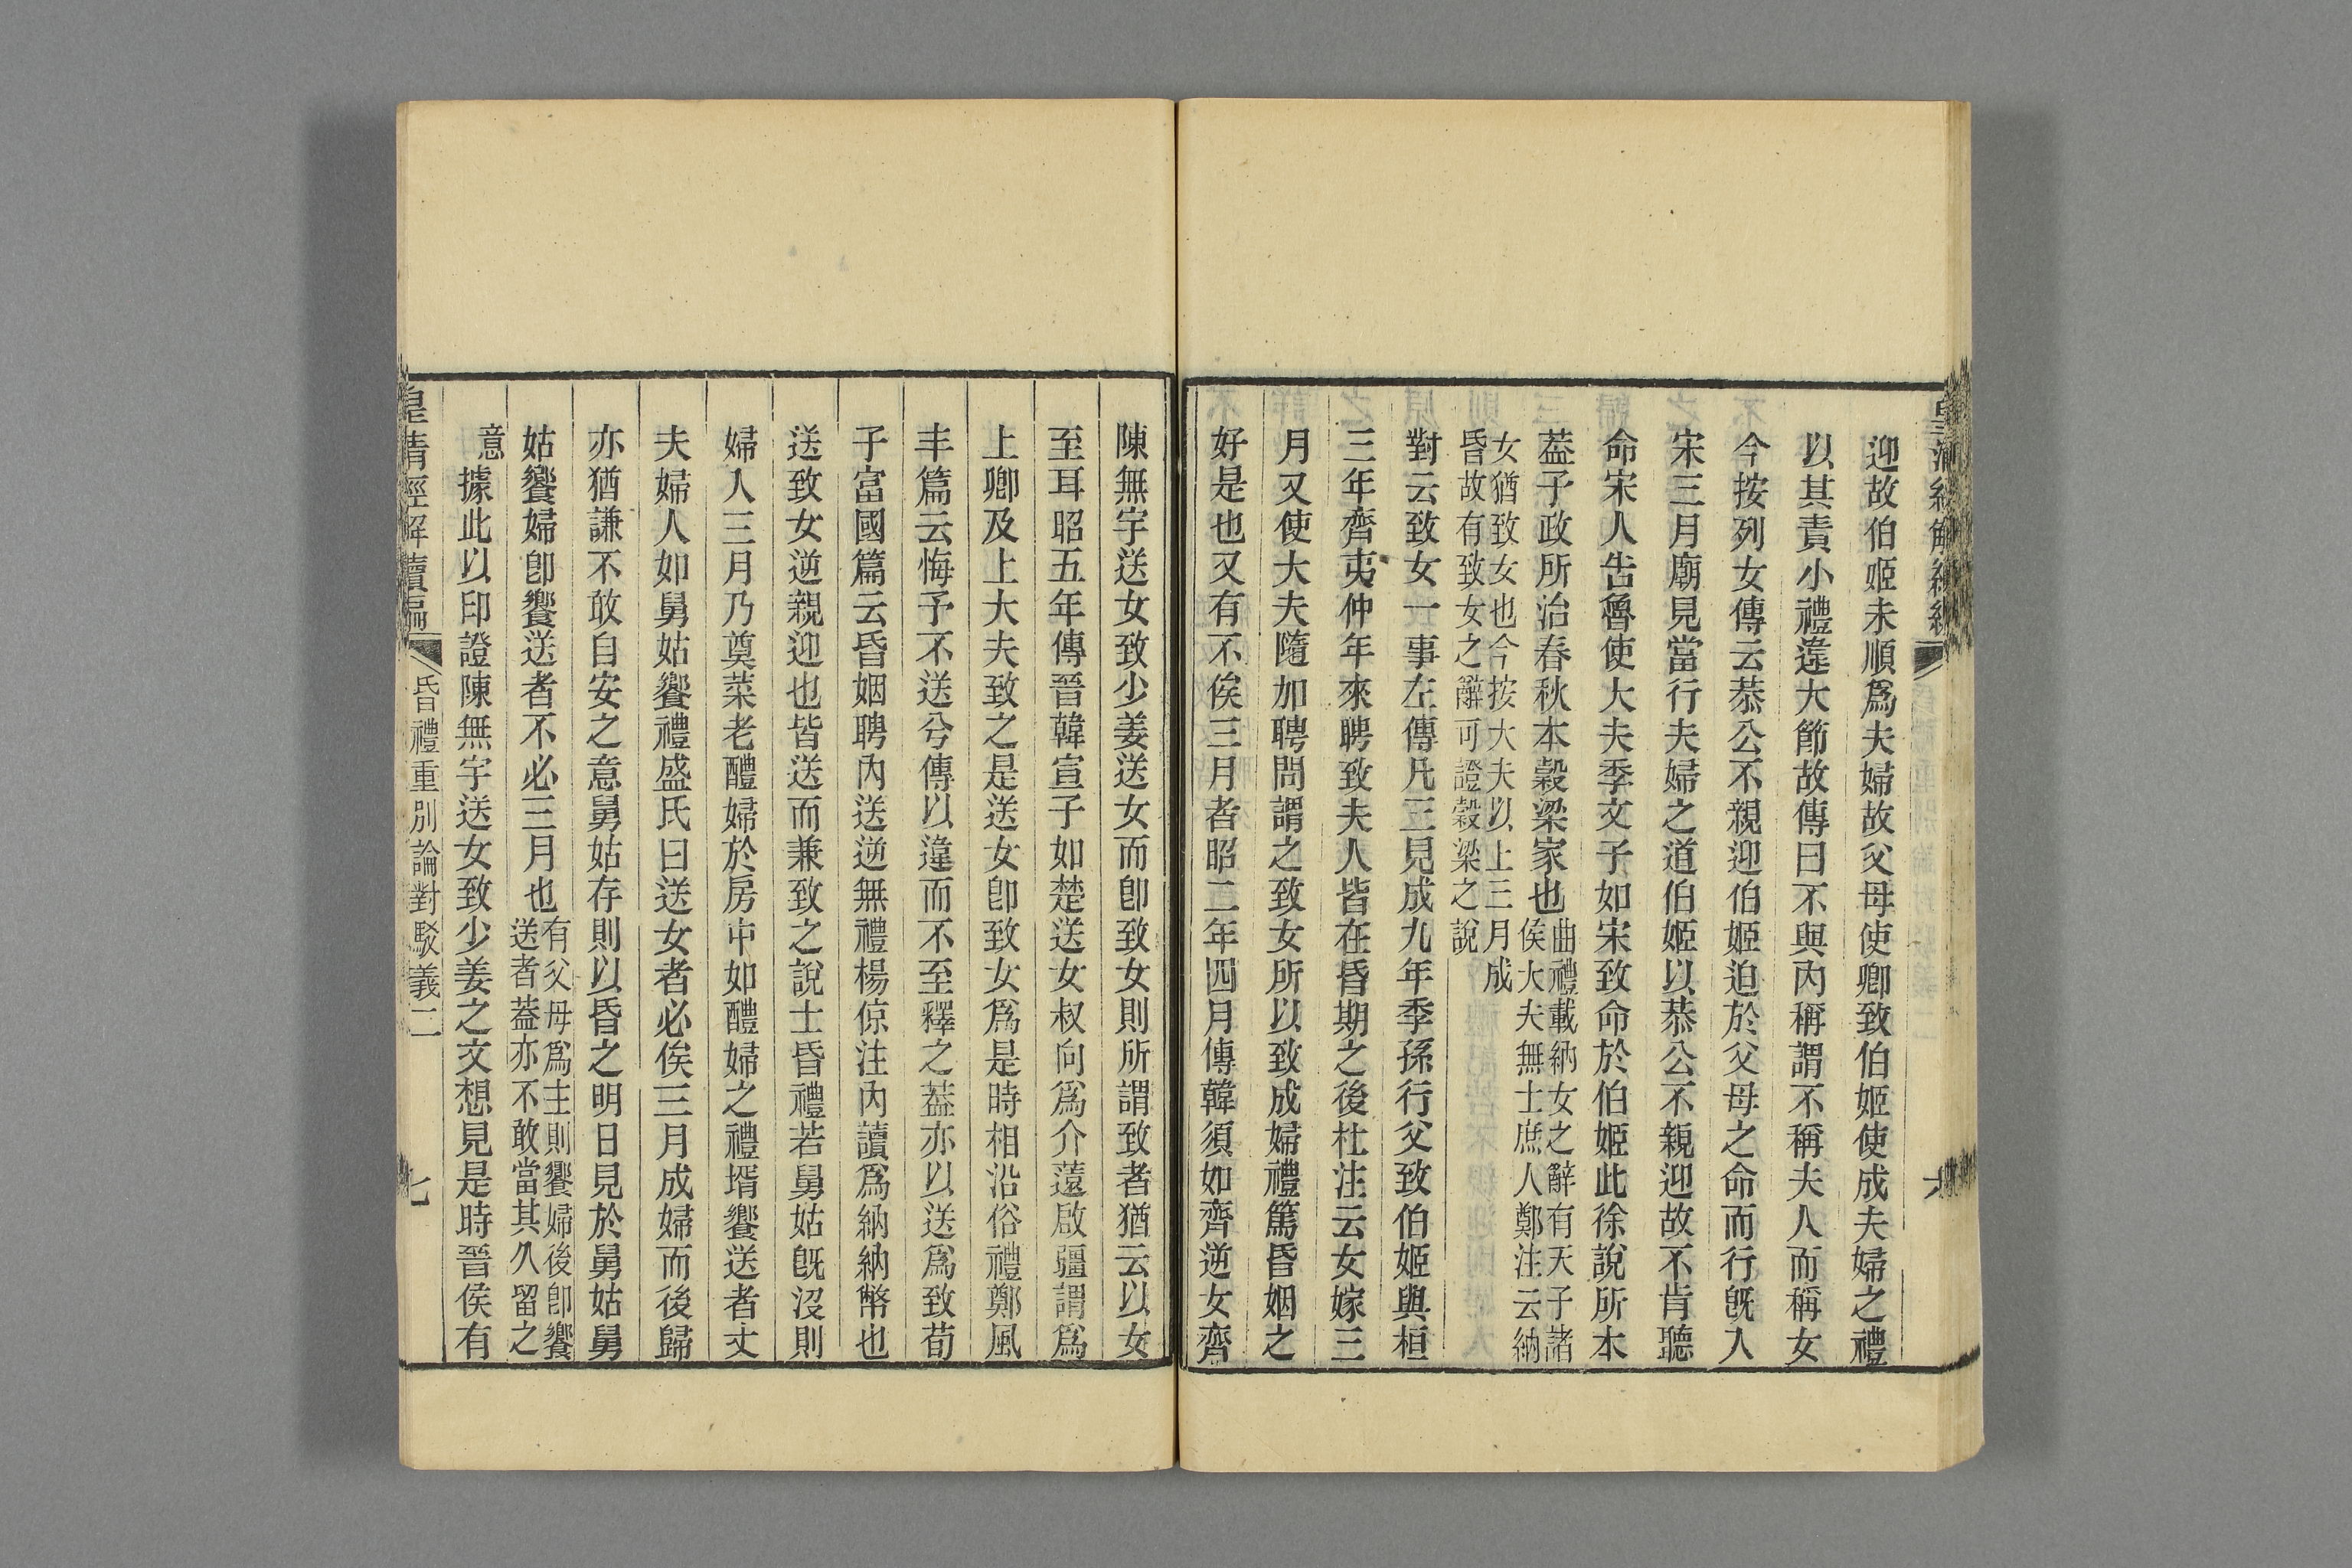 迎故伯姬未順爲夫婦故父母使卿致伯姬使成夫婦之禮
以其責小禮違大節故傳曰不與內稱謂不稱夫人而稱女
今按列女傳云恭公不親迎伯姬迫於父母之命而行旣入
宋三月廟見當行夫婦之道伯姬以恭公不親迎故不肯聽
命宋人告魯使大夫季文子如宋致命於伯姬此徐說所本
葢子政所治春秋本穀梁家也
曲禮載納女之辭有天子諸
侯大夫無士庶人鄭注云納
女猶致女也今按大夫以上三月成
昏故有致女之辭可證穀梁之說
對云致女一事左傳凡三見成九年季孫行父致伯姬與桓
三年齊夷仲年來聘致夫人皆在昏期之後杜注云女嫁三
月又使大夫隨加聘問謂之致女所以致成婦禮篤昏姻之
好是也又有不俟三月者昭二年四月傳韓須如齊逆女齊
陳無宇送女致少姜送女而卽致女則所謂致者猶云以女
至耳昭五年傳晉韓宣子如楚送女叔向爲介薳啟疆謂爲
上卿及上大夫致之是送女卽致女爲是時相沿俗禮鄭風
丰篇云悔予不送兮傳以違而不至釋之葢亦以送爲致荀
子富國篇云昏姻聘內送逆無禮楊倞注內讀爲納納幣也
送致女逆親迎也皆送而兼致之說士昏禮若舅姑旣沒則
婦人三月乃奠菜老醴婦於房中如醴婦之禮壻饗送者丈
夫婦人如舅姑饗禮盛氏曰送女者必俟三月成婦而後歸
亦猶謙不敢自安之意舅姑存則以昏之明日見於舅姑舅
姑饗婦卽饗送者不必三月也
有父母爲主則饗婦後卽饗
送者葢亦不敢當其久留之
意
據此以印證陳無宇送女致少姜之文想見是時晉侯有
皇淸經解續編
昏禮重別論對駁義二
七